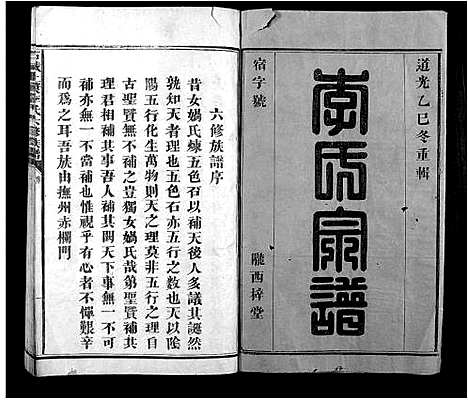 道光乙巳冬重輯
李氏宗譜
宿字號
隴西梓堂
六修族譜序
昔女媧氏煉五色石以補天後人多議其誕然
孰知天者理也五色石亦五行之精也天以陰
陽五行化生萬物則天之理莫非五行之理自
古聖賢無不補之豈獨女媧氏哉第聖賢補其
理君相補其事吾人補其闕天下事無一不可
補亦無一不當補也惟視乎有心者不憚艱辛
而為之耳吾族由撫州赤欄門